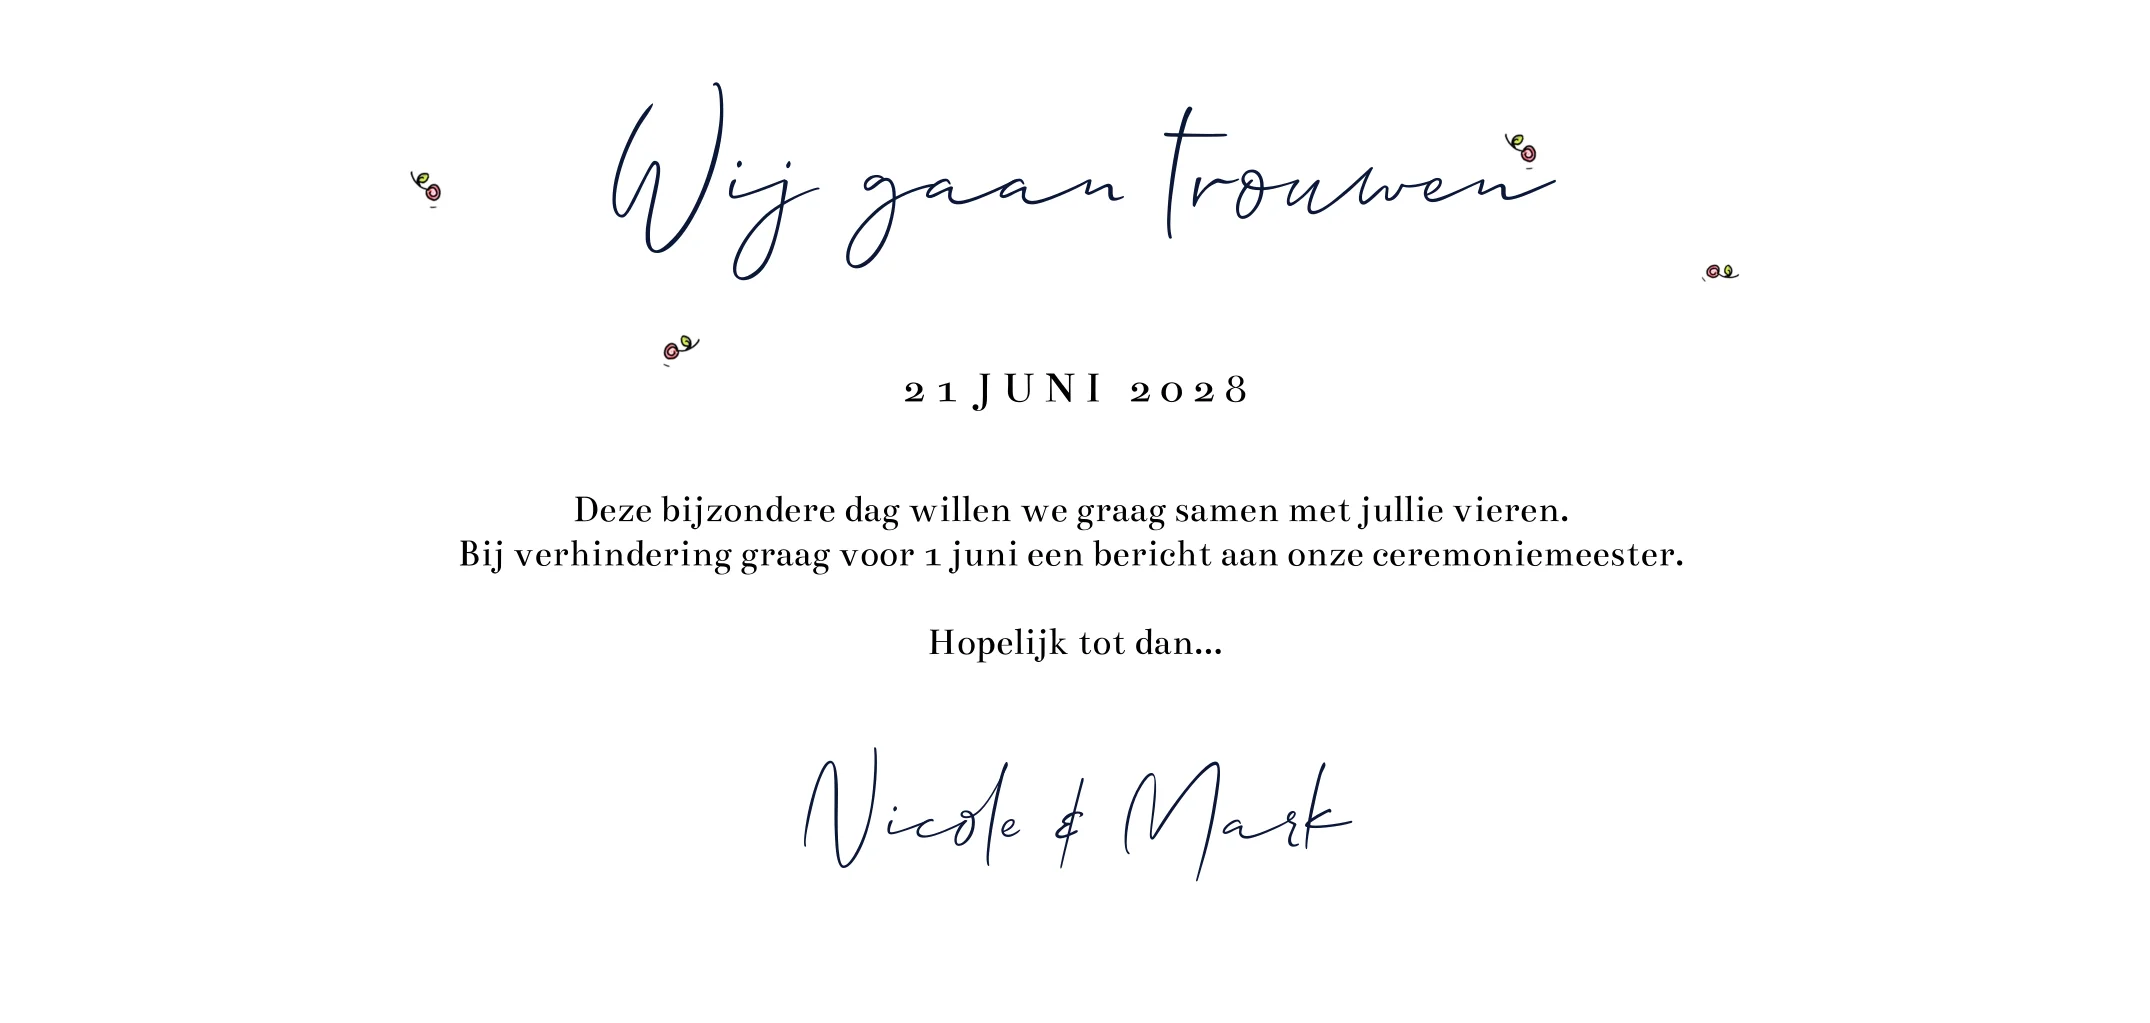 Wij gaan trouwen
21 JUNI 2028
Deze bijzondere dag willen we graag samen met jullie vieren.
Bij verhindering graag voor 1 juni een bericht aan onze ceremoniemeester.
Hopelijk tot dan...
Nicole & Mark